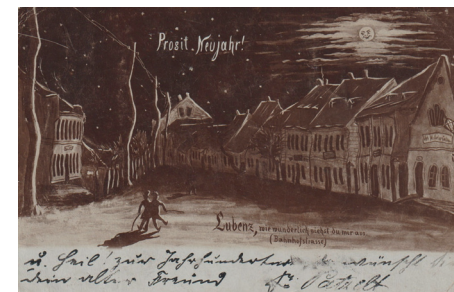 Prosit Neujahr!
Lubenz, wie wunderlich siehst du mir aus
(Bahnhofstrasse)
u. Heil! zur Jahrhundertw wünscht
dein alter Freund